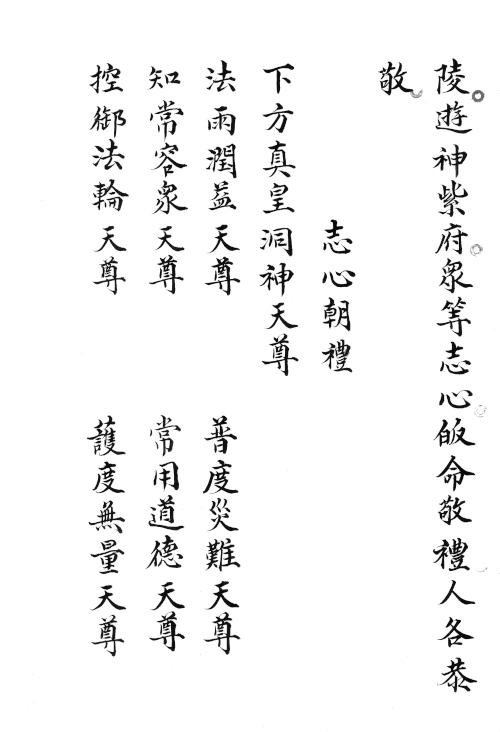 陵遊神紫府衆等志心皈命敬禮人各恭
敬
志心朝禮
下方真皇洞神天尊
法雨潤益天尊　普度災難天尊
知常容衆天尊　常用道德天尊
控御法輪天尊　護度無量天尊